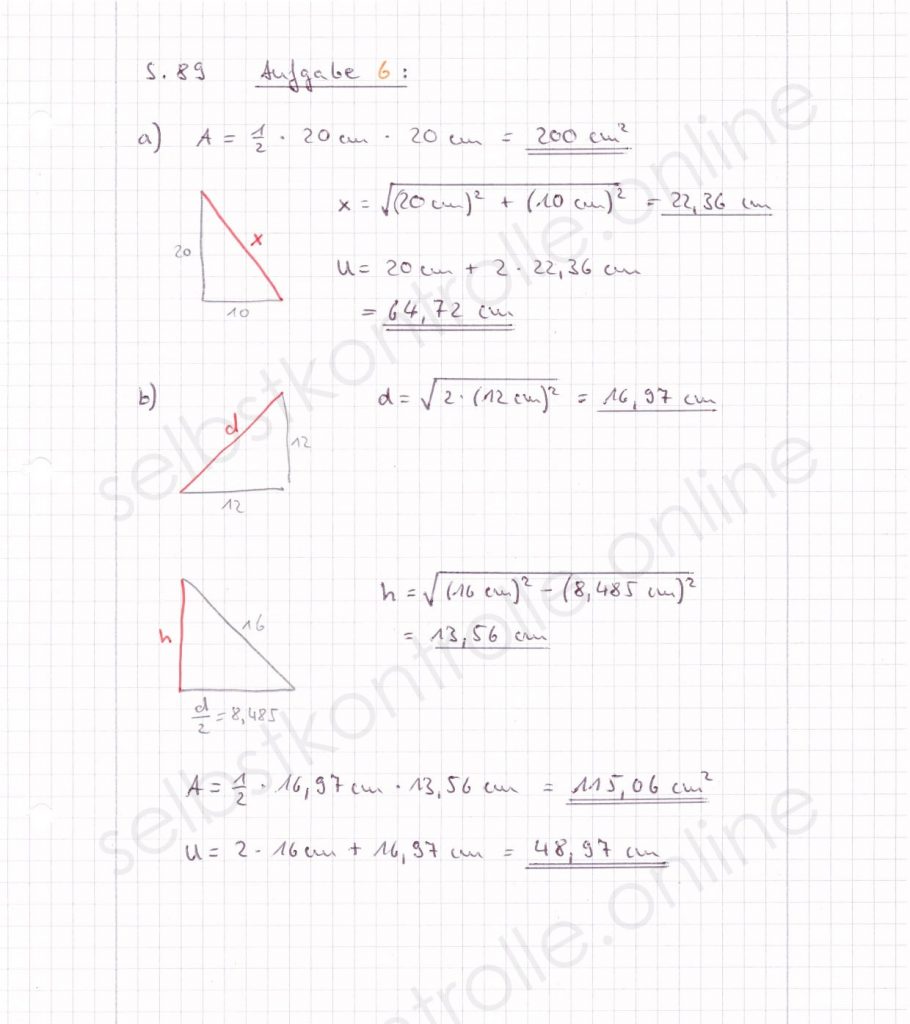 S. 89 Aufgabe 6:
a) A = 1/2 · 20 cm · 20 cm = 200 cm²
x = √((20 cm)² + (10 cm)²) = 22,36 cm
20
x
10
U = 20 cm + 2 · 22,36 cm
= 64,72 cm
b) d = √(2 · (12 cm)²) = 16,97 cm
d
12
12
h = √((16 cm)² - (8,485 cm)²)
= 13,56 cm
h
16
d/2 = 8,485
A = 1/2 · 16,97 cm · 13,56 cm = 115,06 cm²
U = 2 · 16 cm + 16,97 cm = 48,97 cm
selbstkontrolle.online
selbstkontrolle.online
selbstkontrolle.online